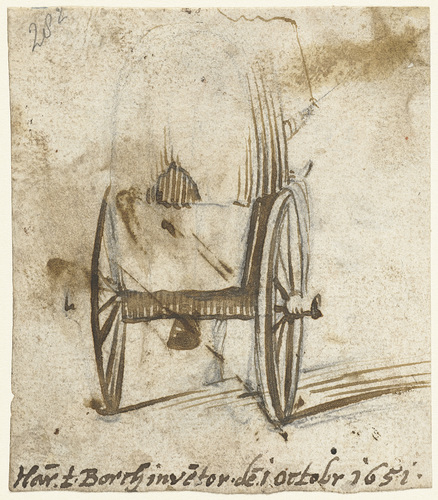 282
Har̄. t. Borch invētor. dē 1 octobr 1651.